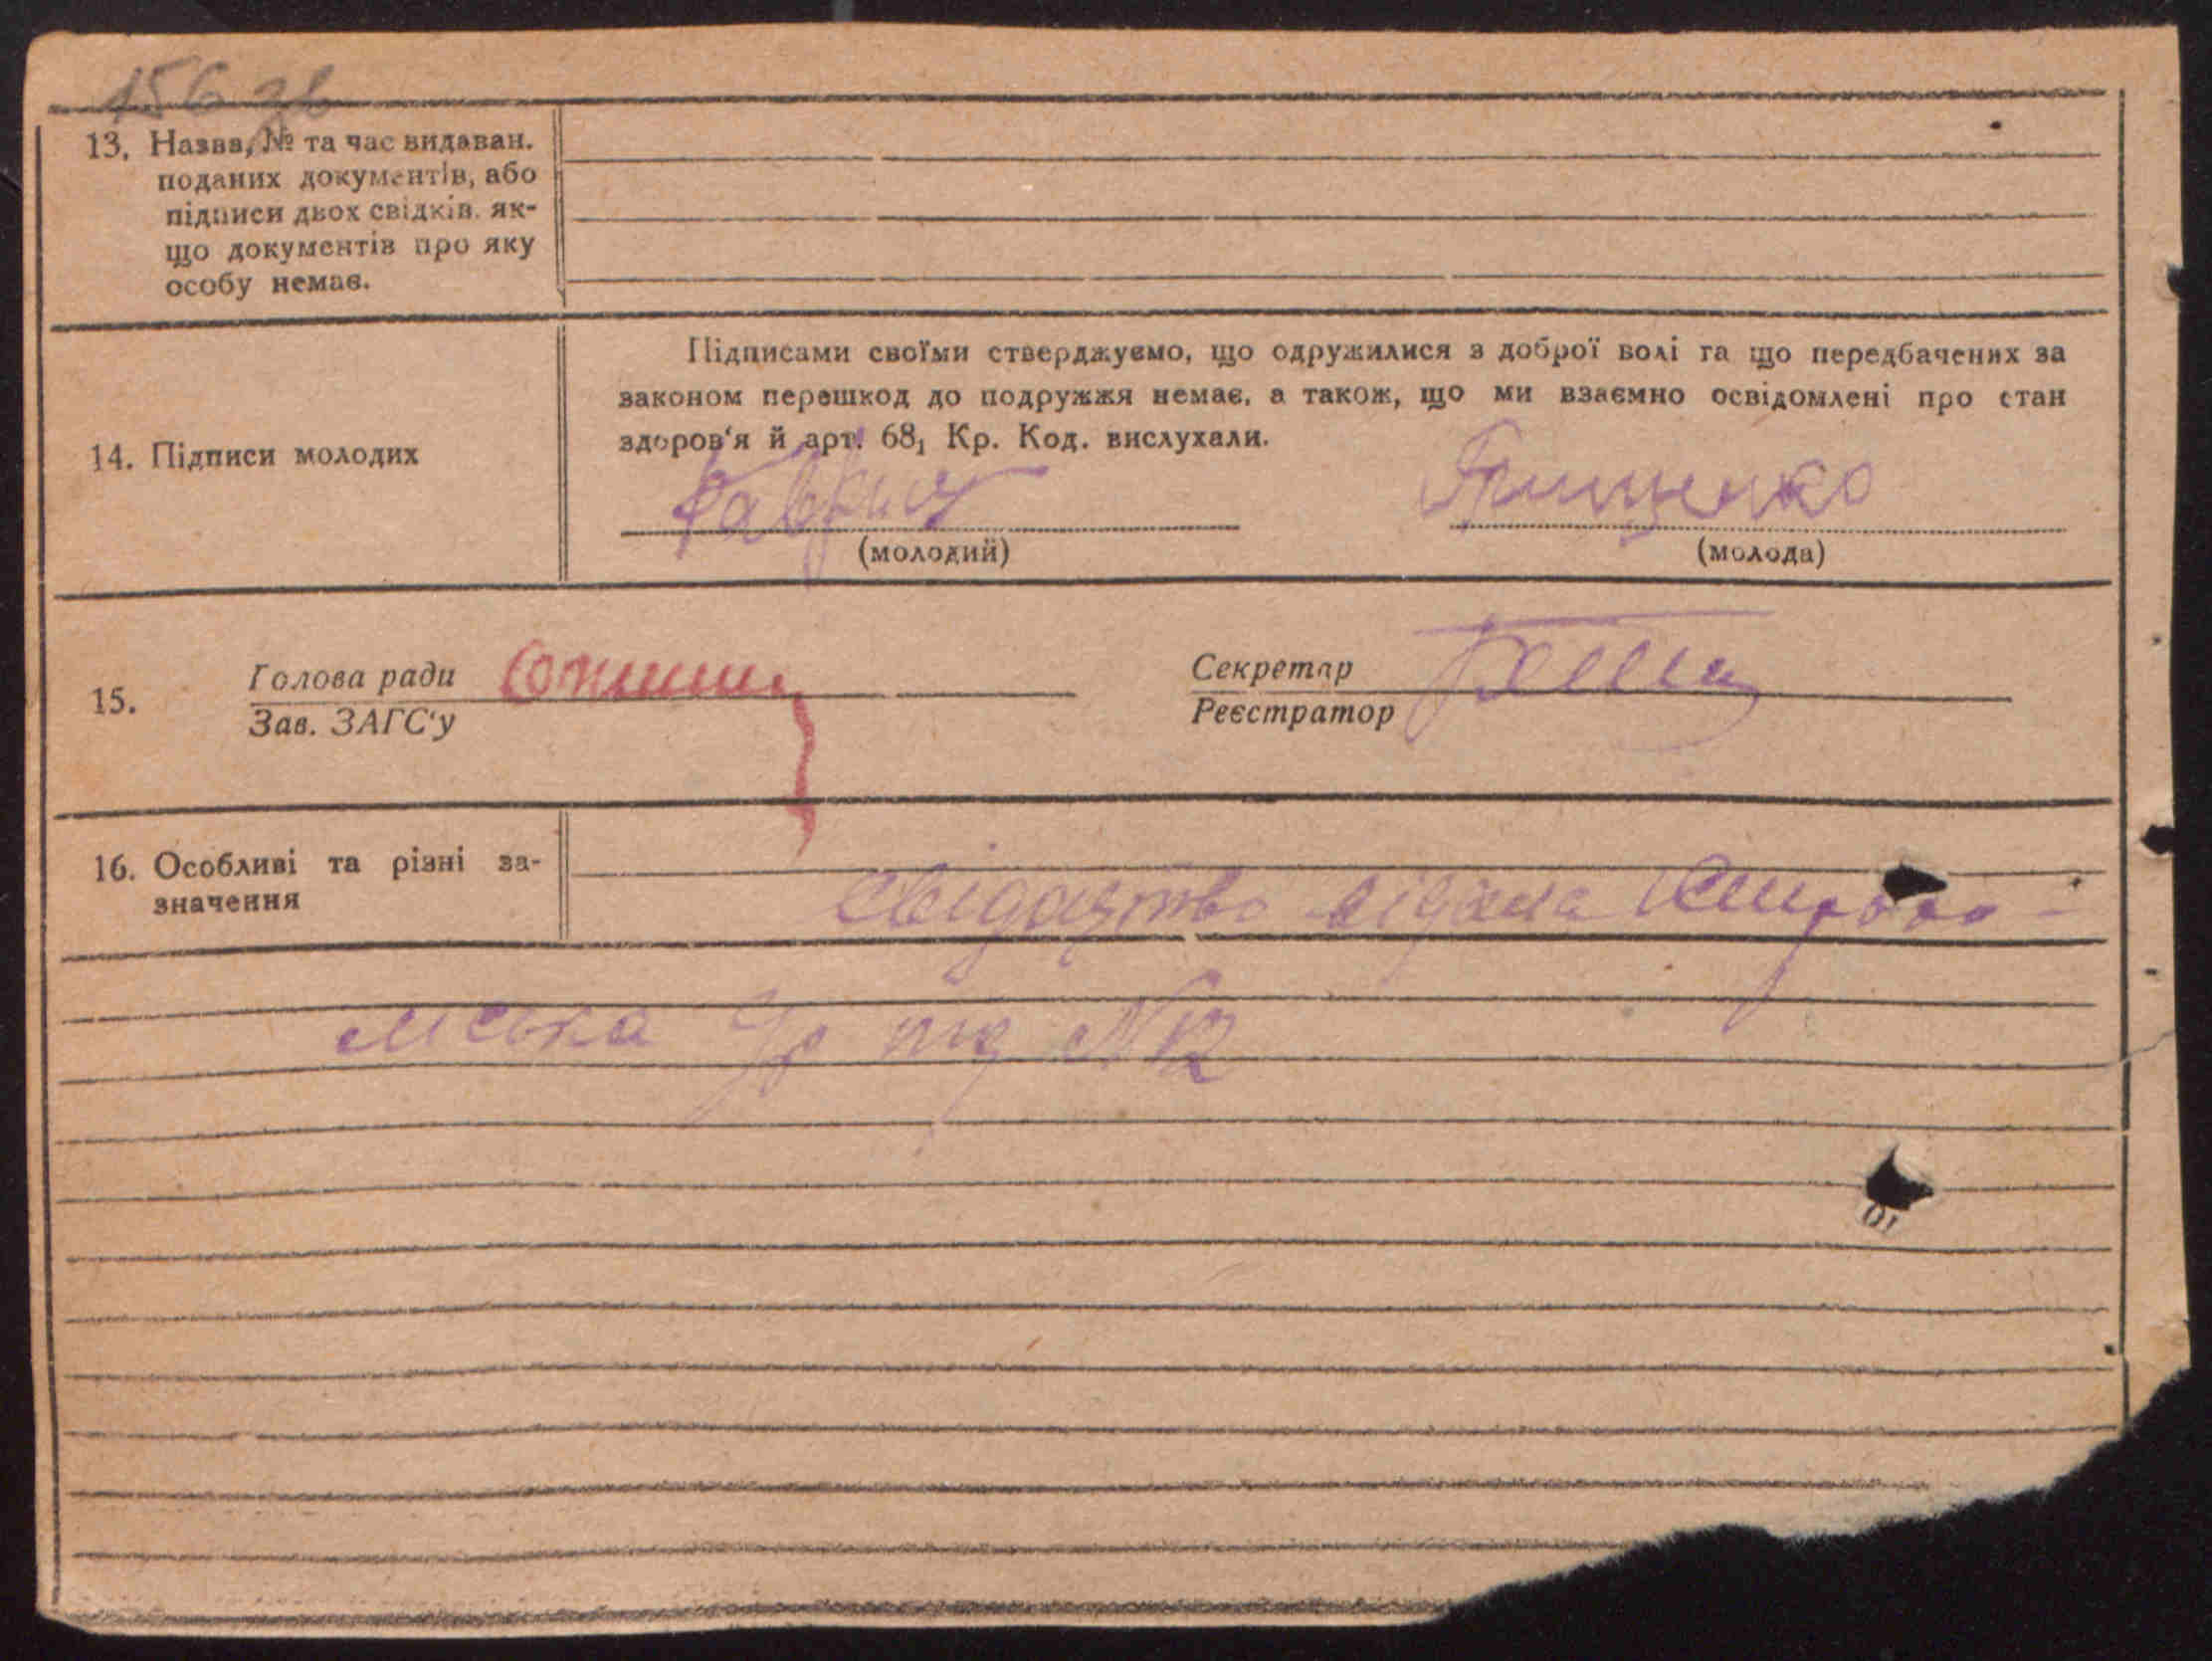 156 зв
13. Назва, № та час видаван.
поданих документів, або
підписи двох свідків, як-
що документів про яку
особу немає.
Підписами своїми стверджуємо, що одружилися з доброї волі та що передбачених за
законом перешкод до подружжя немає, а також, що ми взаємно освідомлені про стан
здоров'я й арт. 68, Кр. Код. вислухали.
14. Підписи молодих
Грищенко
(молодий) (молода)
15. Голова ради
Зав. ЗАГС'у
Секретар
Реєстратор
16. Особливі та різні за-
значення
свідоцтво видана
під №12